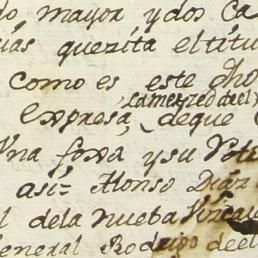 do mayor y dos Ca
querita el titu
como es este dho
la merzed del
Expresa, deque
Una foxa y su Vote
asi= Alonso Diaz
l dela nueba Vizcay
General Rodrigo deel